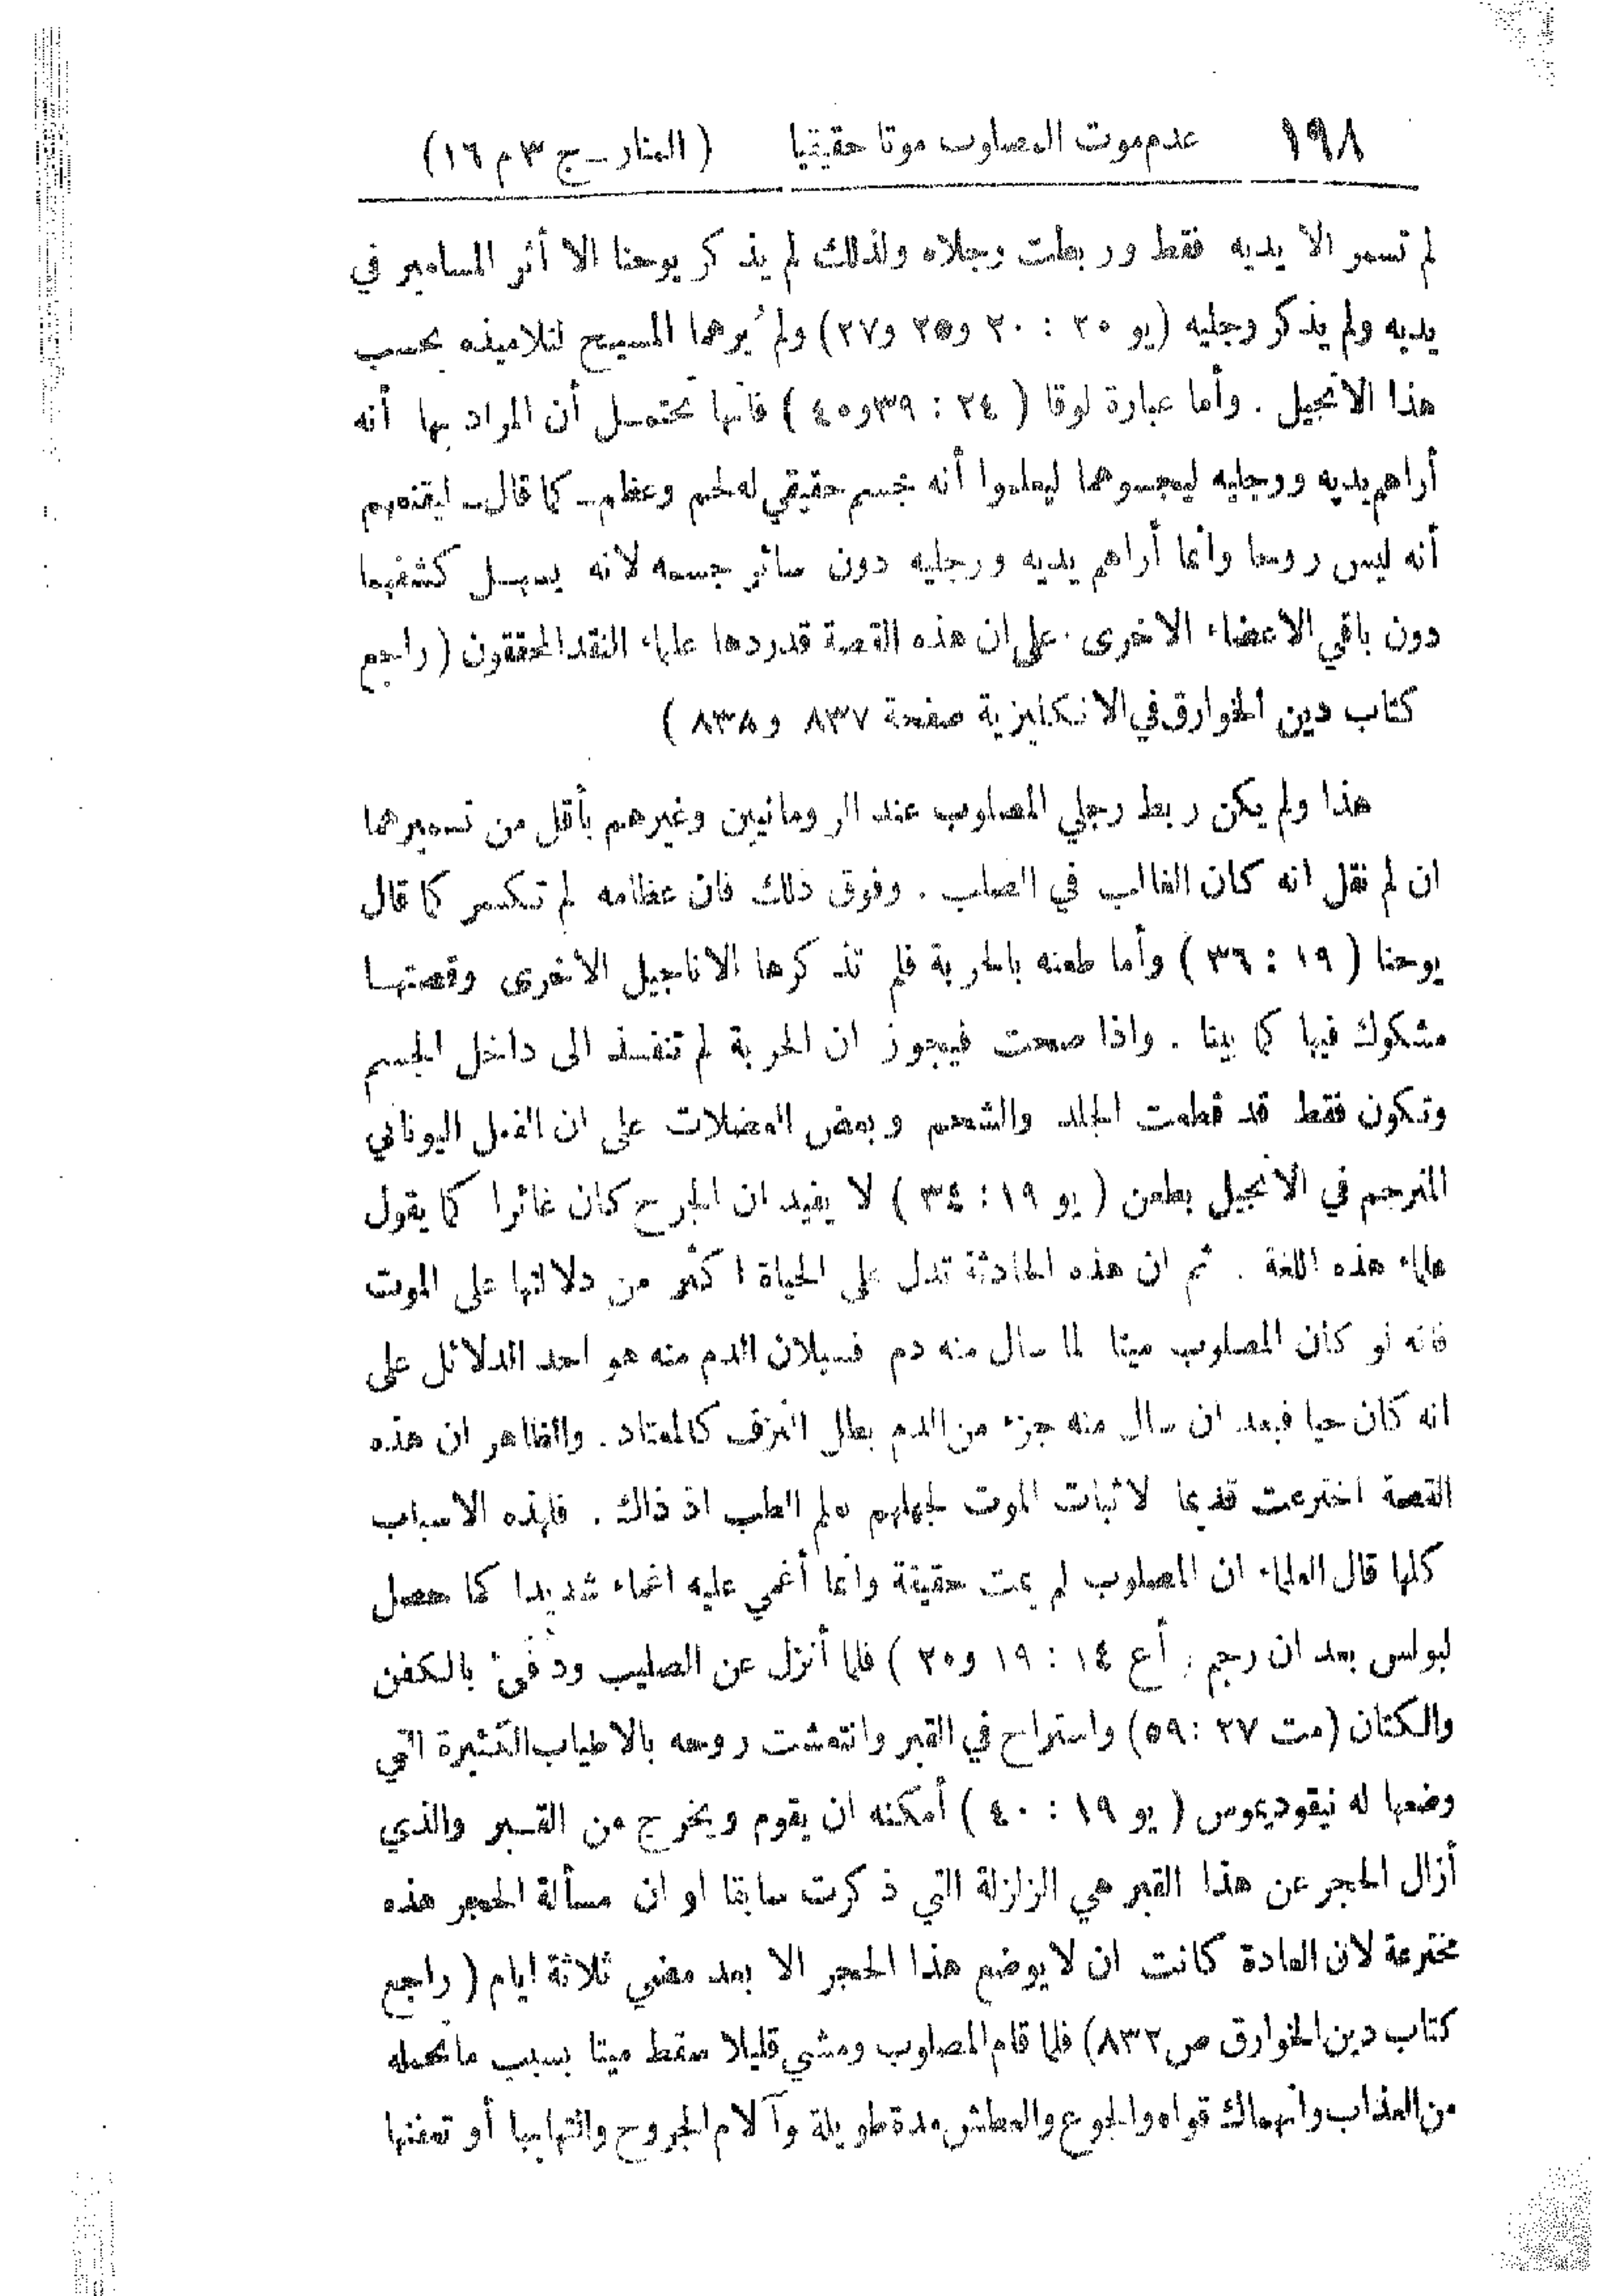 ١٩٨ عدم موت المصلوب موتا حقيقيا (المنار ـ ج ٣ م ١٦)
لم تسمر الا يديه فقط وربطت رجلاه ولذلك لم يذكر يوحنا الا أثر المسامير في
يديه ولم يذكر رجليه (يو ٢٠ : ٢٠ و٢٥ و٢٧) ولم يُرهما المسيح لتلاميذه بحسب
هذا الانجيل . وأما عبارة لوقا ( ٢٤ : ٣٩ و٤٠ ) فانها تحتمل أن المراد بها أنه
أراهم يديه ورجليه ليجسوهما ليعلموا أنه جسم حقيقي له لحم وعظم ـ كما قال ـ ليقنعهم
أنه ليس روحا وانما أراهم يديه ورجليه دون سائر جسمه لانه يسهل كشفهما
دون باقي الاعضاء الاخرى . على ان هذه القصة قد ردها علماء النقد المحققون (راجع
كتاب دين الخوارق في الانكليزية صفحة ٨٣٧ و ٨٣٨ )
هذا ولم يكن ربط رجلي المصلوب عند الرومانيين وغيرهم بأقل من تسميرهما
ان لم نقل انه كان الغالب في الصلب . وفوق ذلك فان عظامه لم تكسر كما قال
يوحنا ( ١٩ : ٣٦ ) وأما طعنه بالحربة فلم تذكرها الاناجيل الاخرى وقصتها
مشكوك فيها كما بينا . واذا صحت فيجوز ان الحربة لم تنفذ الى داخل الجسم
وتكون فقط قد قطعت الجلد والشحم وبعض العضلات على ان الفعل اليوناني
المترجم في الانجيل بطعن ( يو ١٩ : ٣٤ ) لا يفيد ان الجرح كان غائرا كما يقول
علماء هذه اللغة . ثم ان هذه الحادثة تدل على الحياة اكثر من دلالتها على الموت
فانه لو كان المصلوب ميتا لما سال منه دم فسيلان الدم منه هو احد الدلائل على
انه كان حيا فبعد ان سال منه جزء من الدم بطل النزف كالمعتاد . والظاهر ان هذه
القصة اخترعت قديما لاثبات الموت لجهلهم علم الطب اذ ذاك . فلهذه الاسباب
كلها قال العلماء ان المصلوب لم يمت حقيقة وانما أغمي عليه اغماء شديدا كما حصل
لبولس بعد ان رجم ( أع ١٤ : ١٩ و٢٠ ) فلما أنزل عن الصليب ودفئ بالكفن
والكتان (مت ٢٧ : ٥٩) واستراح في القبر وانتعشت روحه بالاطياب الكثيرة التي
وضعها له نيقوديموس ( يو ١٩ : ٤٠ ) أمكنه ان يقوم ويخرج من القبر والذي
أزال الحجر عن هذا القبر هي الزلزلة التي ذكرت سابقا او ان مسألة الحجر هذه
مخترعة لان العادة كانت ان لا يوضع هذا الحجر الا بعد مضي ثلاثة ايام ( راجع
كتاب دين الخوارق ص ٨٣٢) فلما قام المصلوب ومشى قليلا سقط ميتا بسبب ما تحمله
من العذاب وانهماك قواه والجوع والعطش مدة طويلة وآلام الجروح والتهابها أو تعفنها